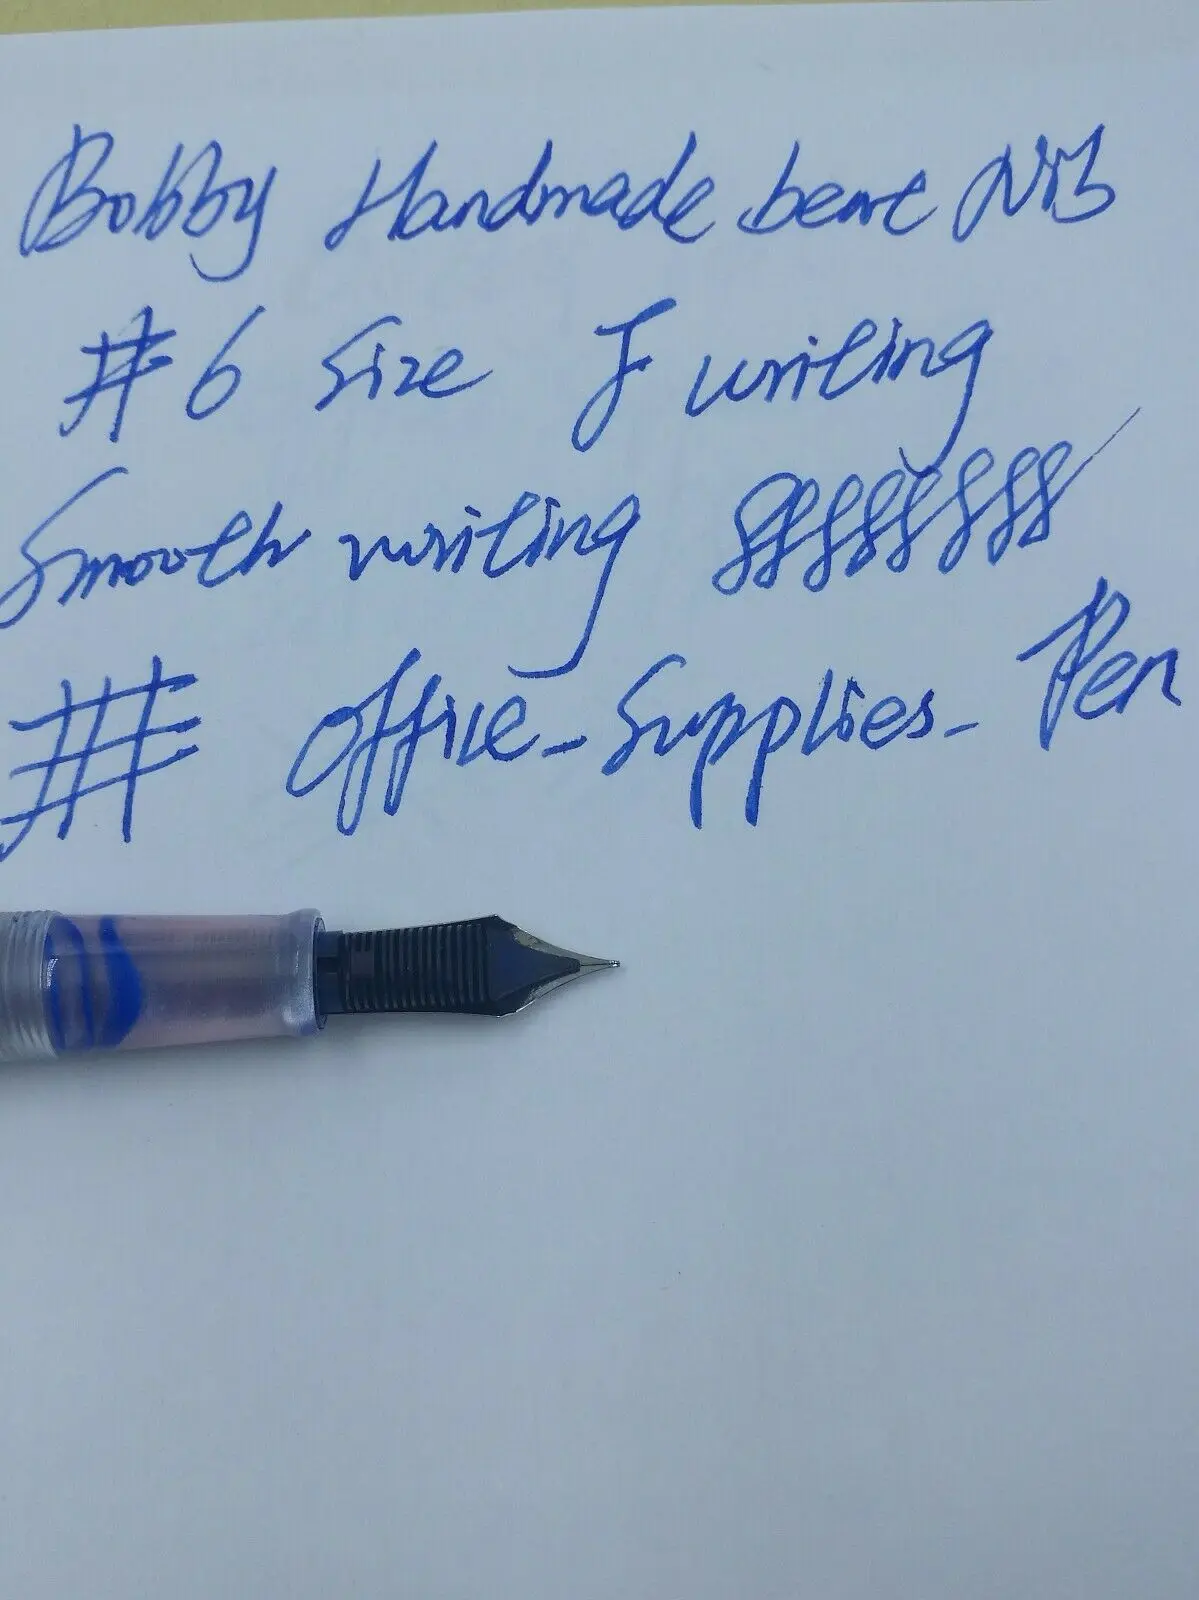 Bobby Handmade bent NIB
#6 Size F writing
Smooth writing
Office_Supplies_Pen